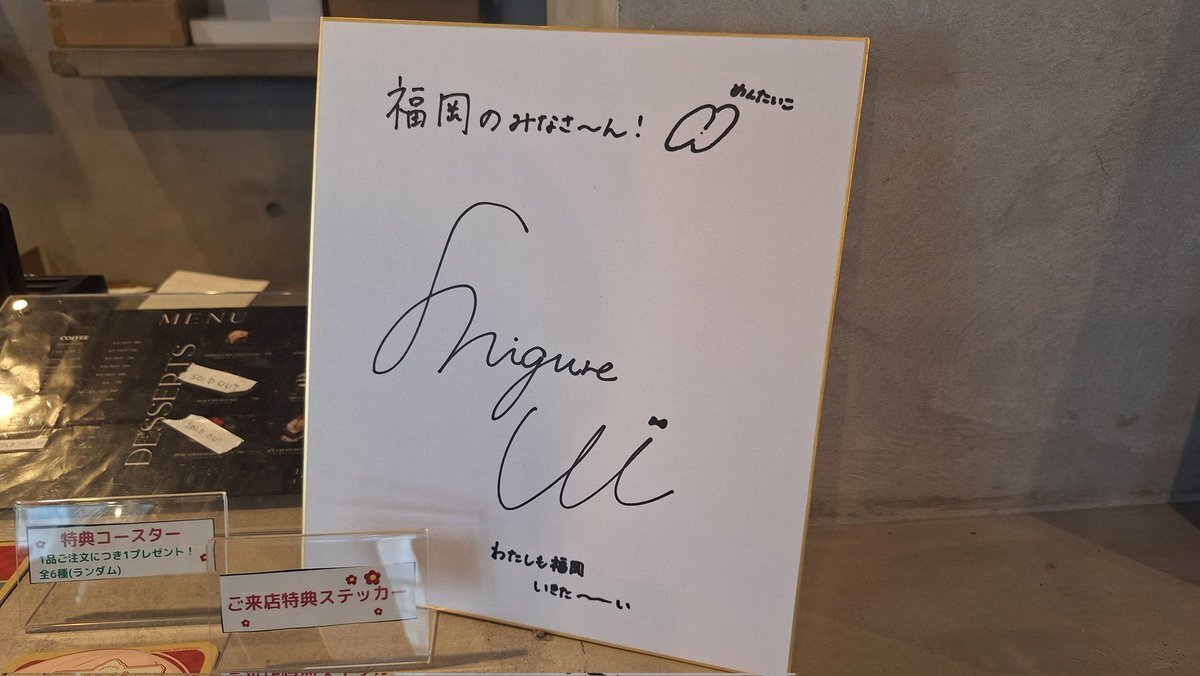 福岡のみなさ〜ん!
めんたいこ
Shigure
Ui
わたしも福岡
いきた〜〜い
MENU
COFFEE
DESSERTS
SOLD OUT
SOLD OUT
特典コースター
1品ご注文につき1プレゼント!
全6種(ランダム)
ご来店特典ステッカー